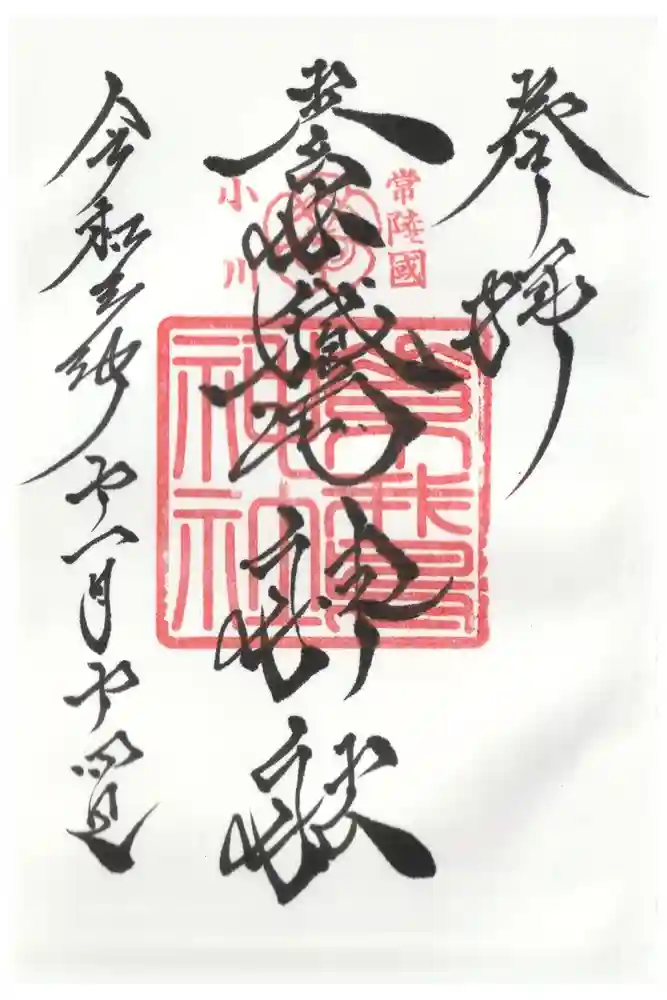 奉拝
常陸國
小川
素鵞神社
素鵞神社
令和 年 十一月十 日